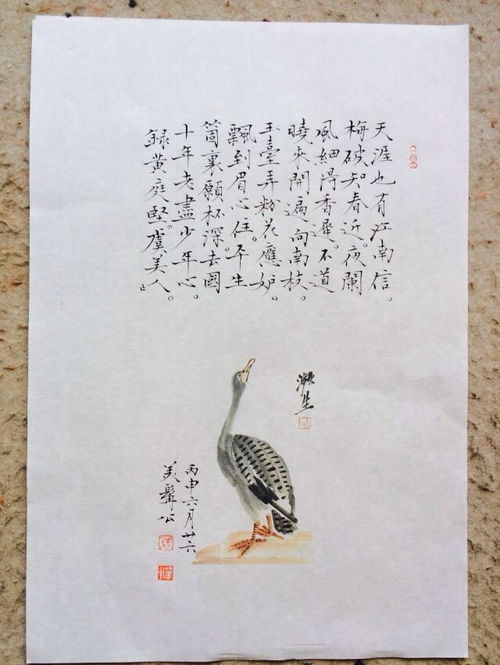 天涯也有江南信。
梅破知春近。夜闌
風細得香遲。不道
曉来開遍向南枝。
玉臺弄粉花應妒。
飄到眉心住。平生
箇裏願杯深。去國
十年老盡少年心。
録黄庭堅。虞美人。
生
丙申六月廿六
美髯公